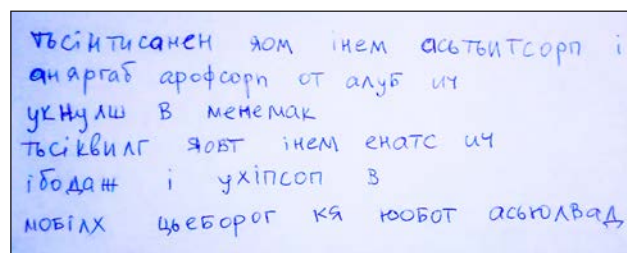 тьсінтисанен яом інем асьтьитсорп і
аняргаб арофсорп от алуб ич
укнулш в менемак
тьсіквилг яовт інем енатс ич
ібодаж і ухіпсоп в
мовілх цьеборог кя юовот асьюлвад